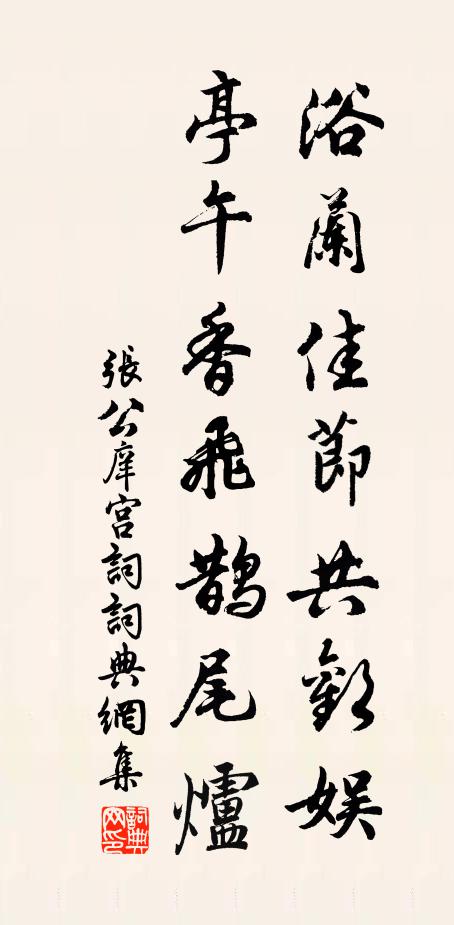 浴蘭佳節共歡娛
亭午香飛鵲尾爐
張公庠宮詞詞典網集
詞典網印